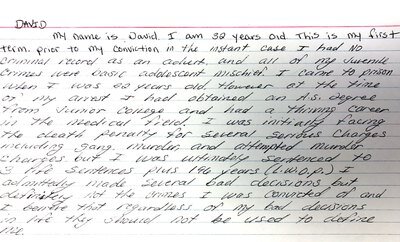 DAVID
My name is David. I am 32 years old. This is my first
term. prior to my conviction in the instant case I had no
criminal record as an adult and all of my juvenile
crimes were basic adolescent mischief. I came to prison
when I was 22 years old. However at the time
of my arrest I had obtained an A.S. degree
from Junior College and had a thriving career
in the medical field. I was initially facing
the death penalty for several serious charges
including gang, murder, and attempted murder
charges but I was ultimately sentenced to
3 life sentences plus 146 years (L.W.O.P.) I
admittedly made several bad decisions but
definitely not the crimes I was convicted of and
I believe that regardless of my bad decisions
in life they should not be used to define
me.